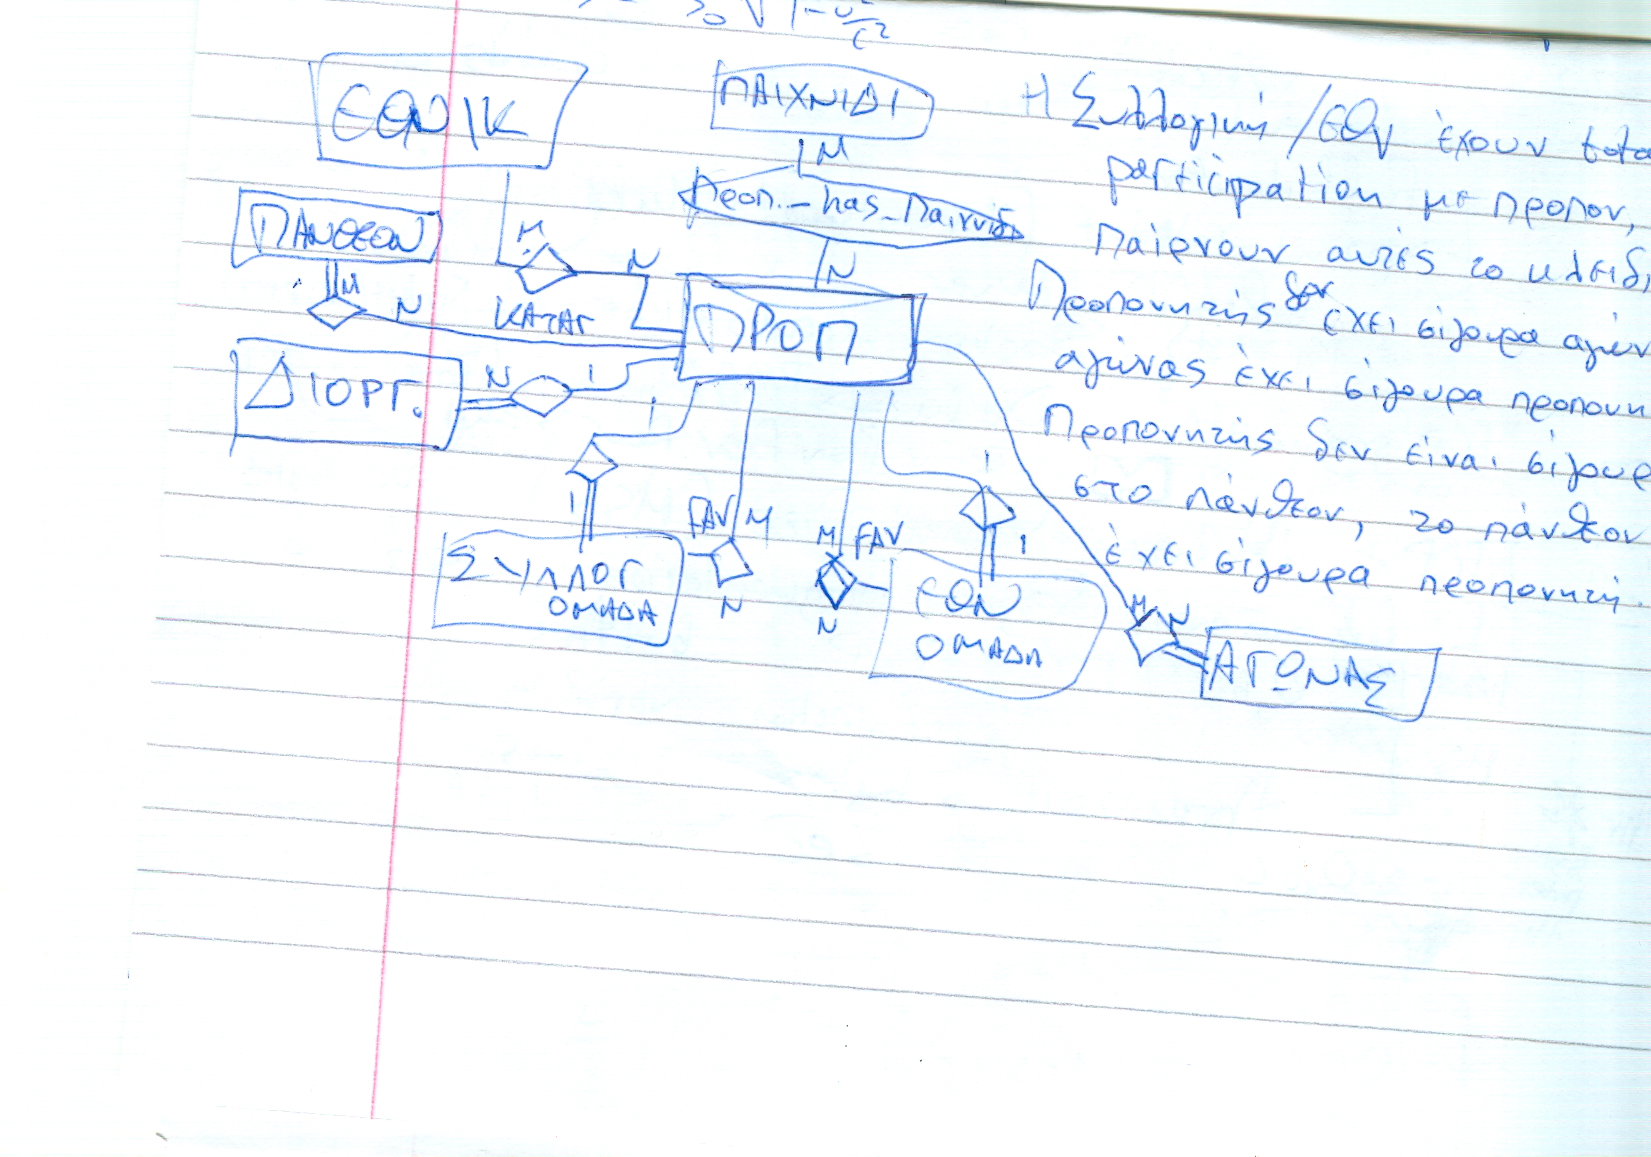 √1-υ²/c²
ΕΘΝΙΚ
ΠΑΙΧΝΙΔΙ
Μ
Προπ._has_Παιχνιδ
Ν
ΠΑΝΘΕΟΝ
Μ
Ν
Μ
Ν
ΚΑΤΑΓ
ΠΡΟΠ
ΔΙΟΡΓ.
Ν
1
1
1
ΣΥΛΛΟΓ
ΟΜΑΔΑ
FAV Μ
Ν
Μ FAV
Ν
1
1
ΕΘΝ
ΟΜΑΔΑ
Μ Ν
ΑΓΩΝΑΣ
Η Συλλογική/Εθν έχουν tota
participation με προπον,
παίρνουν αυτές το κλειδι
Προπονητής δεν έχει σίγουρα αγών
αγώνας έχει σίγουρα προπονη
Προπονητής δεν είναι σίγουρ
στο πάνθεον, το πάνθεον
έχει σίγουρα προπονητή.